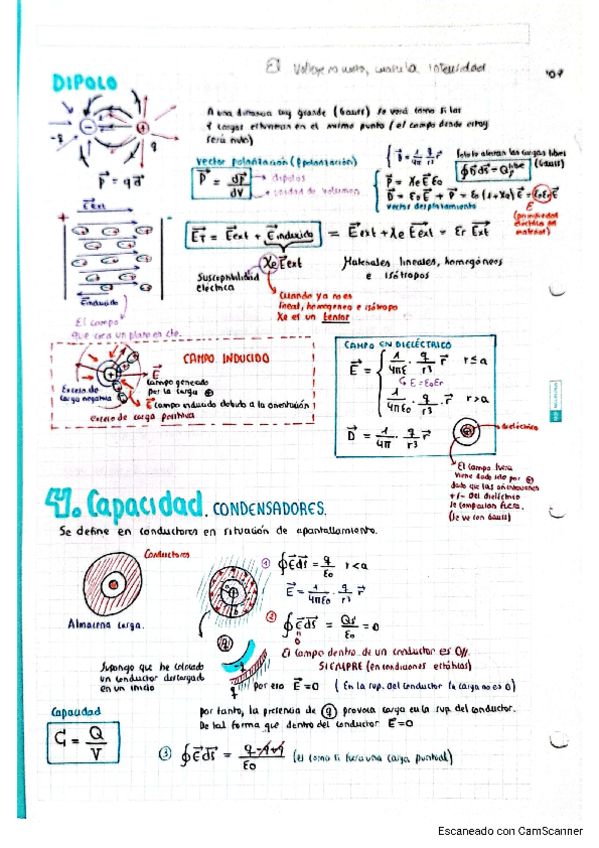 El Voltaje
DIPOLO
A una distancia muy grande (Gauss) se verá como si las
2 cargas estuviesen en el mismo punto (el campo desde estoy
será nulo)
-q q
p⃗ = q d⃗
vector polarización (
P⃗ = dp⃗/dV
dipolos
unidad de volumen
D⃗ = 1/4π q/r³ r⃗
P⃗ = χe E⃗ E0
D⃗ = E0 E⃗ + P⃗ = E0 (1+χe) E⃗ = E0 Er E⃗
vector desplazamiento
las cargas libres
(Gauss)
∮ D⃗ ds⃗ = Q libre
E
(permitividad
eléctrica del
material)
E⃗ext
+ -
E⃗inducido
El campo
que crea un plano es cte.
E⃗T = E⃗ext + E⃗inducido = E⃗ext + χe E⃗ext = Er E⃗xt
χe E⃗ext
Susceptibilidad
eléctrica
Materiales lineales, homogéneos
e isótropos
Cuando ya no es
lineal, homogeneo e isótropo
χe es un tensor
CAMPO INDUCIDO
E⃗
Campo generado
por la carga +
E⃗ campo inducido debido a la orientación
Exceso de
carga negativa
exceso de carga positiva
CAMPO EN DIELÉCTRICO
E⃗ = { 1/4πE · q/r³ r⃗ r≤a
E = E0Er
1/4πE0 · q/r³ r⃗ r>a
D⃗ = 1/4π · q/r³ r⃗
dieléctrico
El campo fuera
viene dado sólo por +
dado que las orientaciones
+/- del dieléctrico
se compensan fuera.
(Se ve con Gauss)
4. Capacidad. CONDENSADORES.
Se define en conductores en situación de apantallamiento.
Conductores
Almacena carga.
1 ∮ E⃗ ds⃗ = q/E0 r<a
E⃗ = 1/4πE0 · q/r³ r⃗
2 ∮ E⃗ ds⃗ = Qs/E0 = 0
0
El campo dentro de un conductor es 0
SIEMPRE (en condiciones estáticas)
Supongo que he colocado
un conductor descargado
en un inicio
q
-q
q
por eso E⃗=0 (En la sup. del conductor la carga no es 0)
Por tanto, la presencia de q provoca carga en la sup. del conductor.
De tal forma que dentro del conductor E⃗=0
Capacidad
C = Q/V
3 ∮ E⃗ ds⃗ = q-q+q/E0 (es como si fuera una carga puntual)
Escaneado con CamScanner